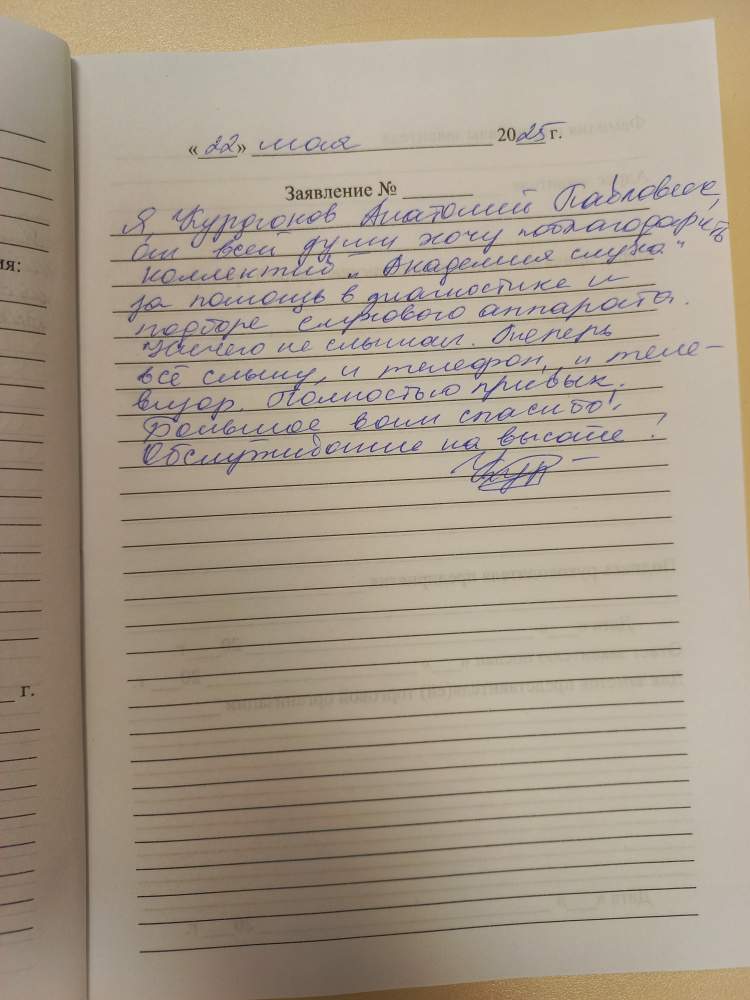 « 22 » мая 2025 г.
Заявление №
Я, Анатолий Павлович,
от всей души хочу поблагодарить
коллектив „Академия слуха"
за помощь в диагностике и
подборе слухового аппарата.
Ничего не слышал. Теперь
всё слышу, и телефон, и теле-
визор. Полностью привык.
Большое вам спасибо!
Обслуживание на высоте!
ия:
г.